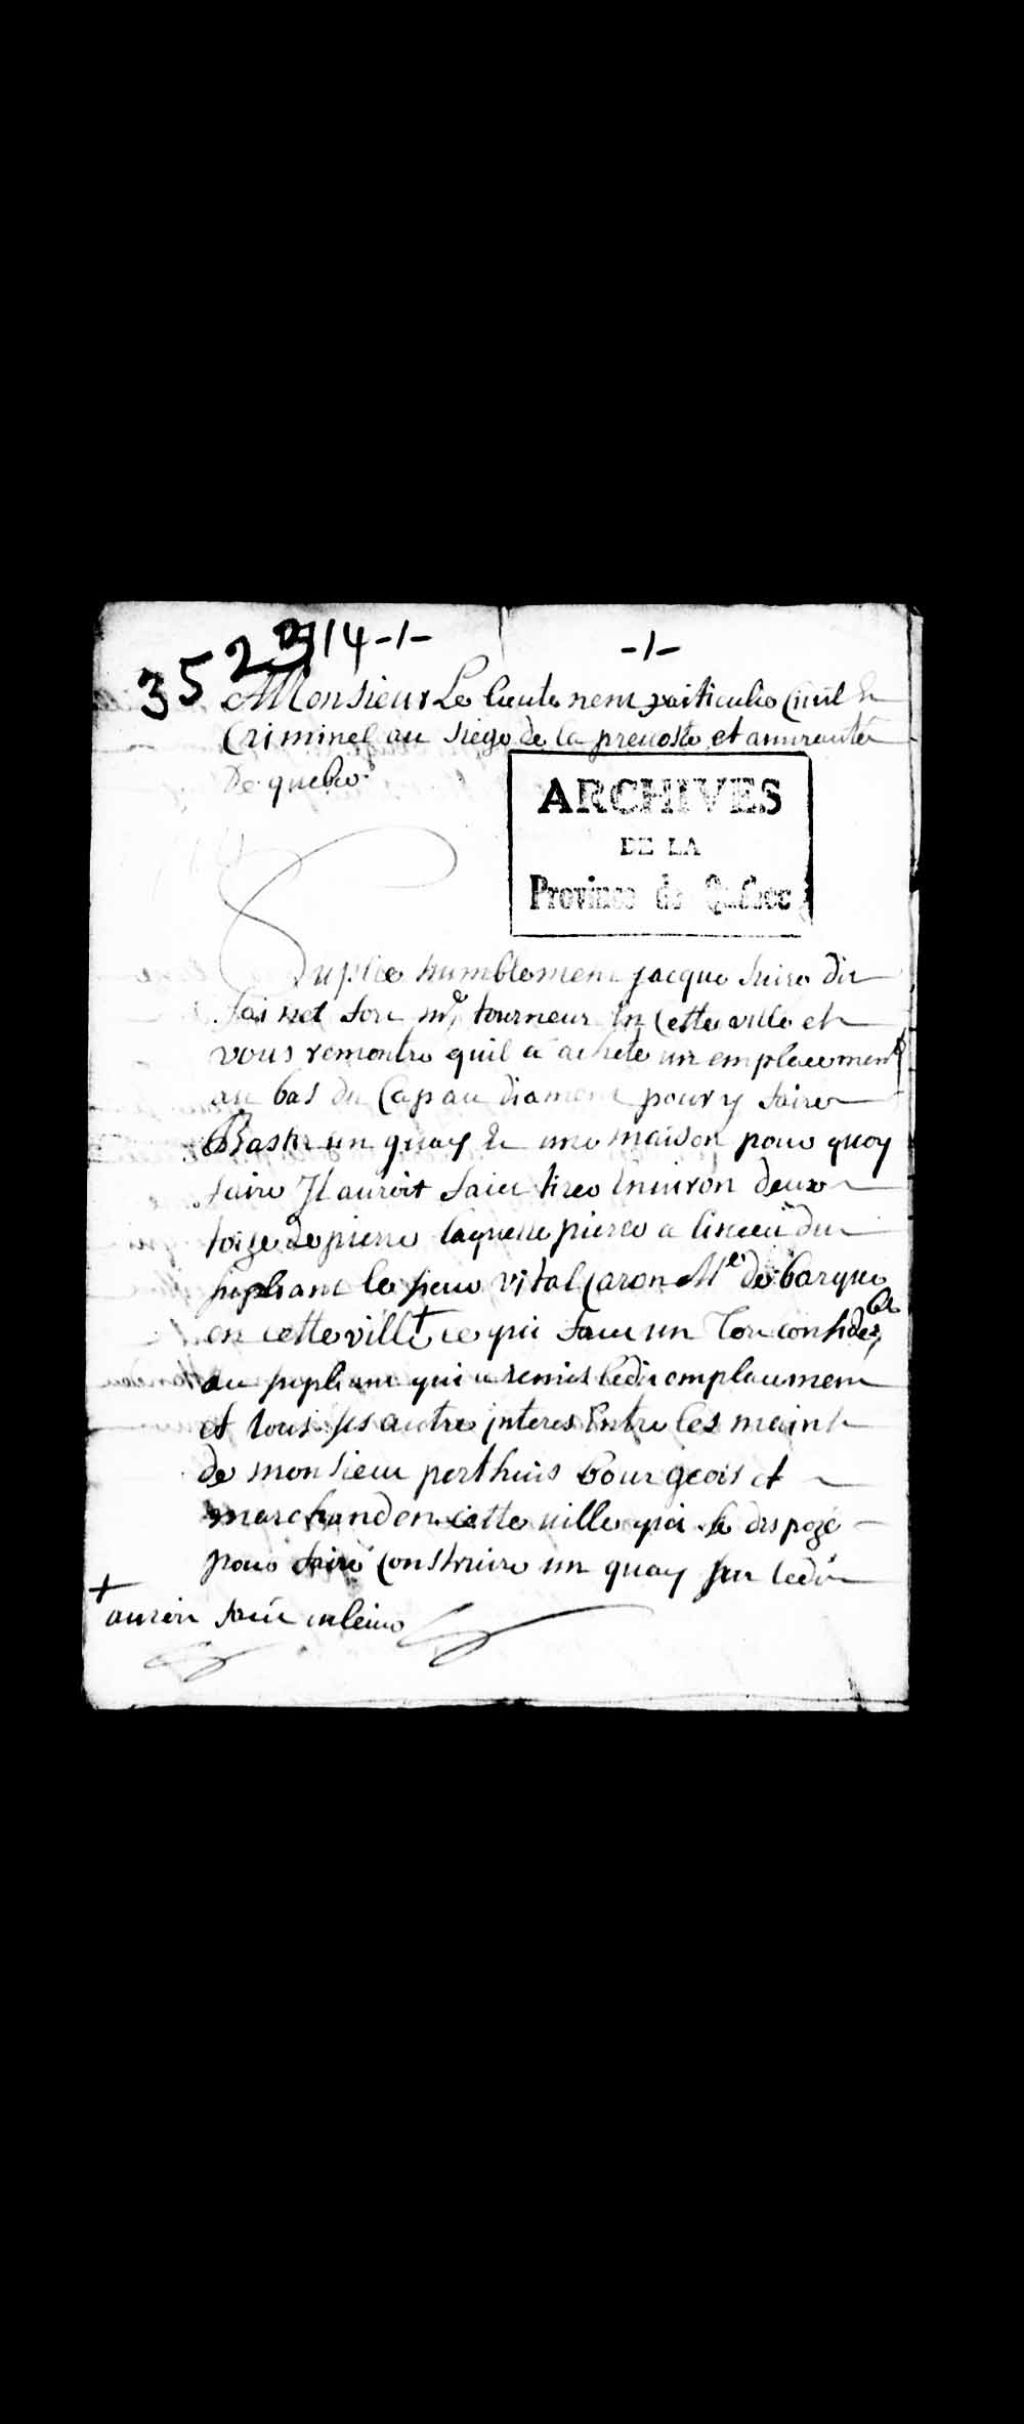 3522 14-1-
-1-
A Monsieur Le lieutenent particulie Civil Et
Criminel au siege de la prevoste et amirauté
De quebec
ARCHIVES
DE LA
Province de Québec
Suplie humblement jacque dit
tourneur En Cette ville et
vous remontre quil a achete un emplacement
au bas du Cap au diament pour y faire
Bastir un quay Et une maison pour quoy
faire Il auroit fait tirer Environ deux
toize de pierre laquelle pierre a linsceü du
supliant le sieur vital Caron Me de barque
en cette ville + ce qui fait un Tort considerable
au supliant qui a remis ledit emplacement
et tous ses autre interes Entre les mains
de monsieur perthuis bourgeois et
marchand en cette ville qui se dispoze
pour faire Construire un quay sur ledit
+
auroit fait enlever